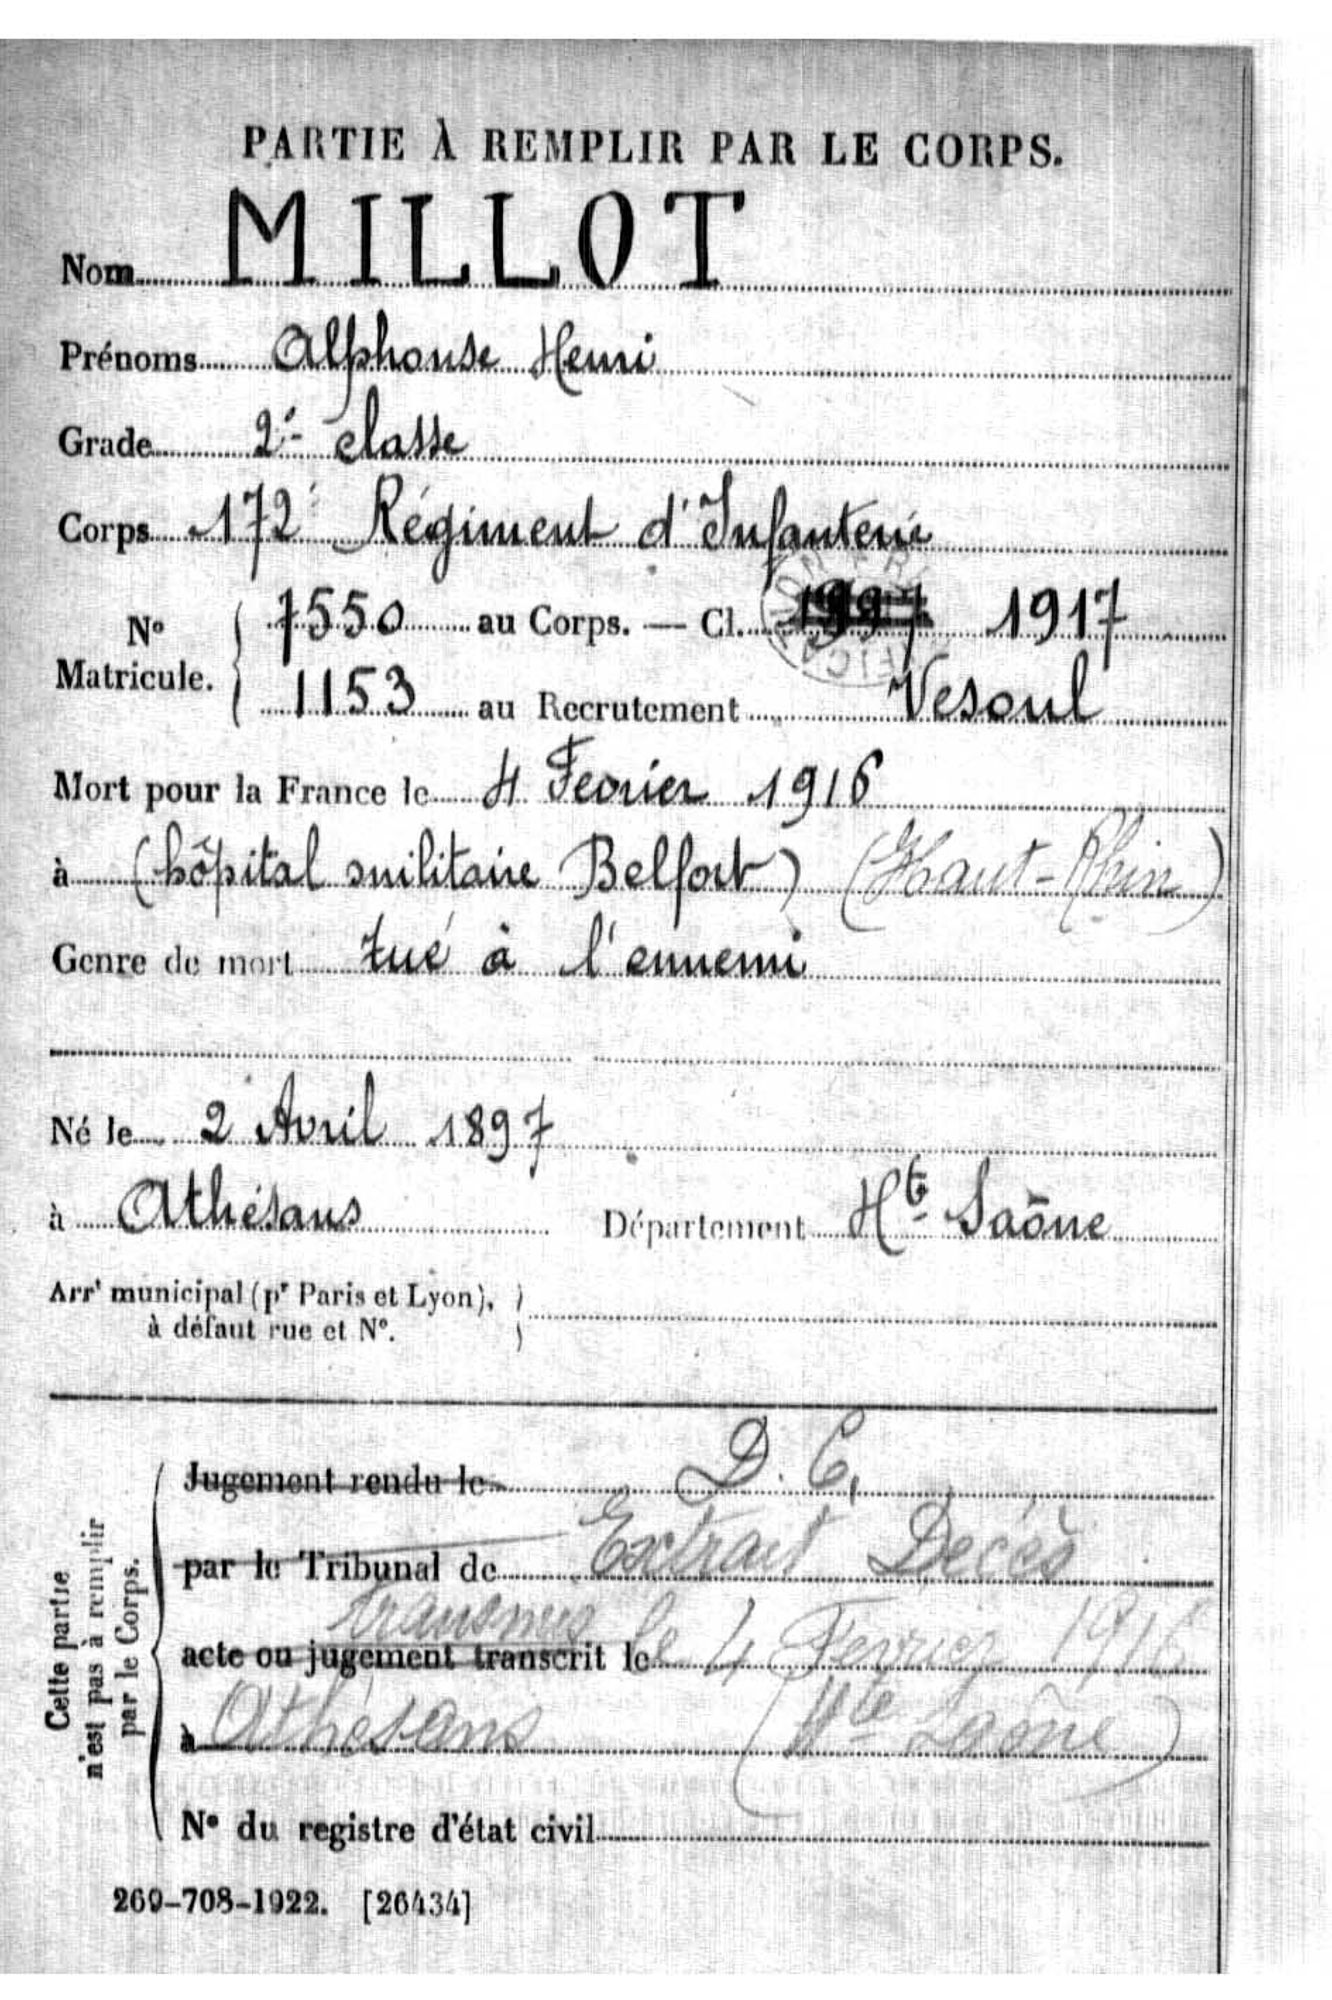 PARTIE À REMPLIR PAR LE CORPS.
Nom MILLOT
Prénoms Alphonse Henri
Grade 2e classe
Corps 172e Régiment d'Infanterie
No Matricule. { 7550 au Corps. — Cl. 1917
1153 au Recrutement Vesoul
Mort pour la France le 4 Fevrier 1916
à (hôpital militaire Belfort) (Haut-Rhin)
Genre de mort tué à l'ennemi
Né le 2 Avril 1897
à Athésans Département Hte Saône
Arrt municipal (pr Paris et Lyon), à défaut rue et No.
Cette partie n'est pas à remplir par le Corps.
Jugement rendu le D. C.
par le Tribunal de Extrait Decès
transmis
acte ou jugement transcrit le le 4 Fevrier 1916
à Athésans (Hte Saône)
No du registre d'état civil
269-708-1922. [26434]